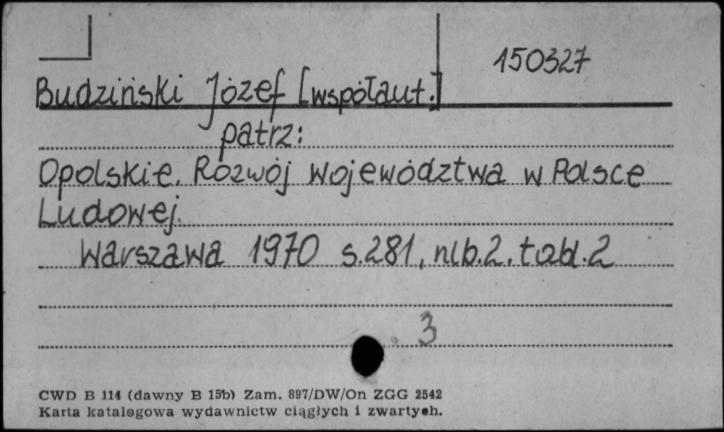 150327
Budziński Józef [współaut.]
patrz:
Opolskie. Rozwój województwa w Polsce
Ludowej.
Warszawa 1970 s.281, nlb.2, tabl.2
3
CWD B 114 (dawny B 15b) Zam. 897/DW/On ZGG 2542
Karta katalogowa wydawnictw ciągłych i zwartych.